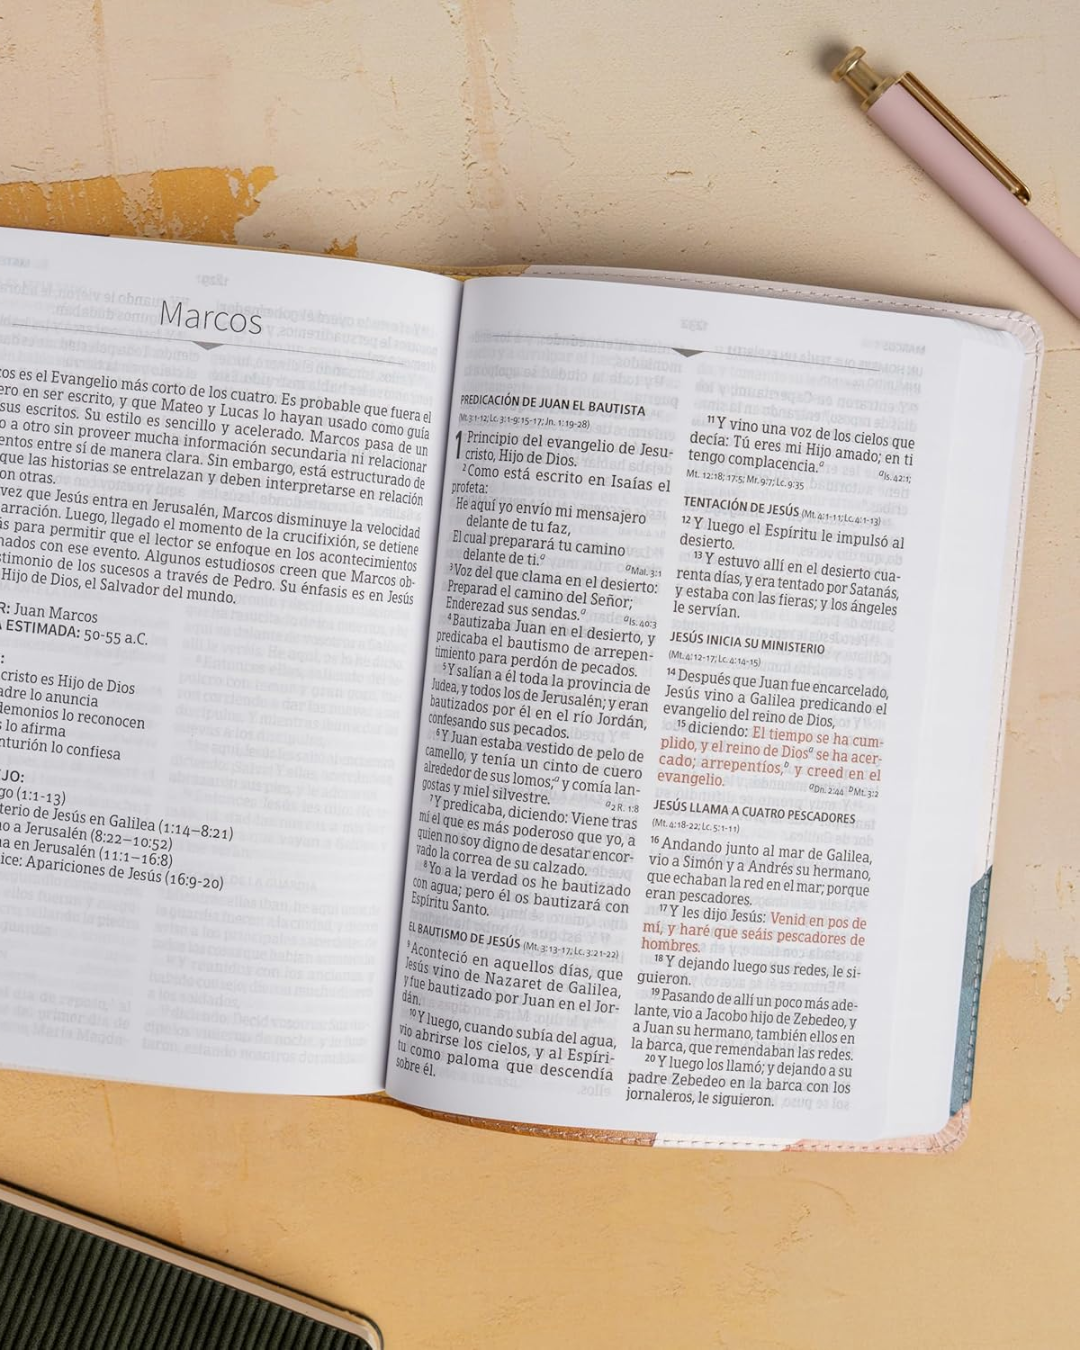 Marcos
cos es el Evangelio más corto de los cuatro. Es probable que fuera el
ero en ser escrito, y que Mateo y Lucas lo hayan usado como guía
sus escritos. Su estilo es sencillo y acelerado. Marcos pasa de un
o a otro sin proveer mucha información secundaria ni relacionar
entos entre sí de manera clara. Sin embargo, está estructurado de
que las historias se entrelazan y deben interpretarse en relación
on otras.
vez que Jesús entra en Jerusalén, Marcos disminuye la velocidad
arración. Luego, llegado el momento de la crucifixión, se detiene
ás para permitir que el lector se enfoque en los acontecimientos
nados con ese evento. Algunos estudiosos creen que Marcos ob-
stimonio de los sucesos a través de Pedro. Su énfasis es en Jesús
Hijo de Dios, el Salvador del mundo.
R: Juan Marcos
A ESTIMADA: 50-55 a.C.
:
cristo es Hijo de Dios
adre lo anuncia
demonios lo reconocen
s lo afirma
nturión lo confiesa
JO:
go (1:1-13)
terio de Jesús en Galilea (1:14–8:21)
no a Jerusalén (8:22–10:52)
na en Jerusalén (11:1–16:8)
ice: Apariciones de Jesús (16:9-20)
PREDICACIÓN DE JUAN EL BAUTISTA
(Mt. 3:1-12; Lc. 3:1-9; 15-17; Jn. 1:19-28)
1 Principio del evangelio de Jesu-
cristo, Hijo de Dios.
2 Como está escrito en Isaías el
profeta:
He aquí yo envío mi mensajero
delante de tu faz,
El cual preparará tu camino
delante de ti.a
a Mal. 3:1
3 Voz del que clama en el desierto:
Preparad el camino del Señor;
Enderezad sus sendas.a
a Is. 40:3
4 Bautizaba Juan en el desierto, y
predicaba el bautismo de arrepen-
timiento para perdón de pecados.
5 Y salían a él toda la provincia de
Judea, y todos los de Jerusalén; y eran
bautizados por él en el río Jordán,
confesando sus pecados.
6 Y Juan estaba vestido de pelo de
camello, y tenía un cinto de cuero
alrededor de sus lomos;a y comía lan-
gostas y miel silvestre.
a 2 R. 1:8
7 Y predicaba, diciendo: Viene tras
mí el que es más poderoso que yo, a
quien no soy digno de desatar encor-
vado la correa de su calzado.
8 Yo a la verdad os he bautizado
con agua; pero él os bautizará con
Espíritu Santo.
EL BAUTISMO DE JESÚS (Mt. 3:13-17; Lc. 3:21-22)
9 Aconteció en aquellos días, que
Jesús vino de Nazaret de Galilea,
y fue bautizado por Juan en el Jor-
dán.
10 Y luego, cuando subía del agua,
vio abrirse los cielos, y al Espíri-
tu como paloma que descendía
sobre él.
11 Y vino una voz de los cielos que
decía: Tú eres mi Hijo amado; en ti
tengo complacencia.a
a Is. 42:1;
Mt. 12:18; 17:5; Mr. 9:7; Lc. 9:35
TENTACIÓN DE JESÚS (Mt. 4:1-11; Lc. 4:1-13)
12 Y luego el Espíritu le impulsó al
desierto.
13 Y estuvo allí en el desierto cua-
renta días, y era tentado por Satanás,
y estaba con las fieras; y los ángeles
le servían.
JESÚS INICIA SU MINISTERIO
(Mt. 4:12-17; Lc. 4:14-15)
14 Después que Juan fue encarcelado,
Jesús vino a Galilea predicando el
evangelio del reino de Dios,
15 diciendo: El tiempo se ha cum-
plido, y el reino de Diosa se ha acer-
cado; arrepentíos,b y creed en el
evangelio.
a Dn. 2:44 b Mt. 3:2
JESÚS LLAMA A CUATRO PESCADORES
(Mt. 4:18-22; Lc. 5:1-11)
16 Andando junto al mar de Galilea,
vio a Simón y a Andrés su hermano,
que echaban la red en el mar; porque
eran pescadores.
17 Y les dijo Jesús: Venid en pos de
mí, y haré que seáis pescadores de
hombres.
18 Y dejando luego sus redes, le si-
guieron.
19 Pasando de allí un poco más ade-
lante, vio a Jacobo hijo de Zebedeo, y
a Juan su hermano, también ellos en
la barca, que remendaban las redes.
20 Y luego los llamó; y dejando a su
padre Zebedeo en la barca con los
jornaleros, le siguieron.